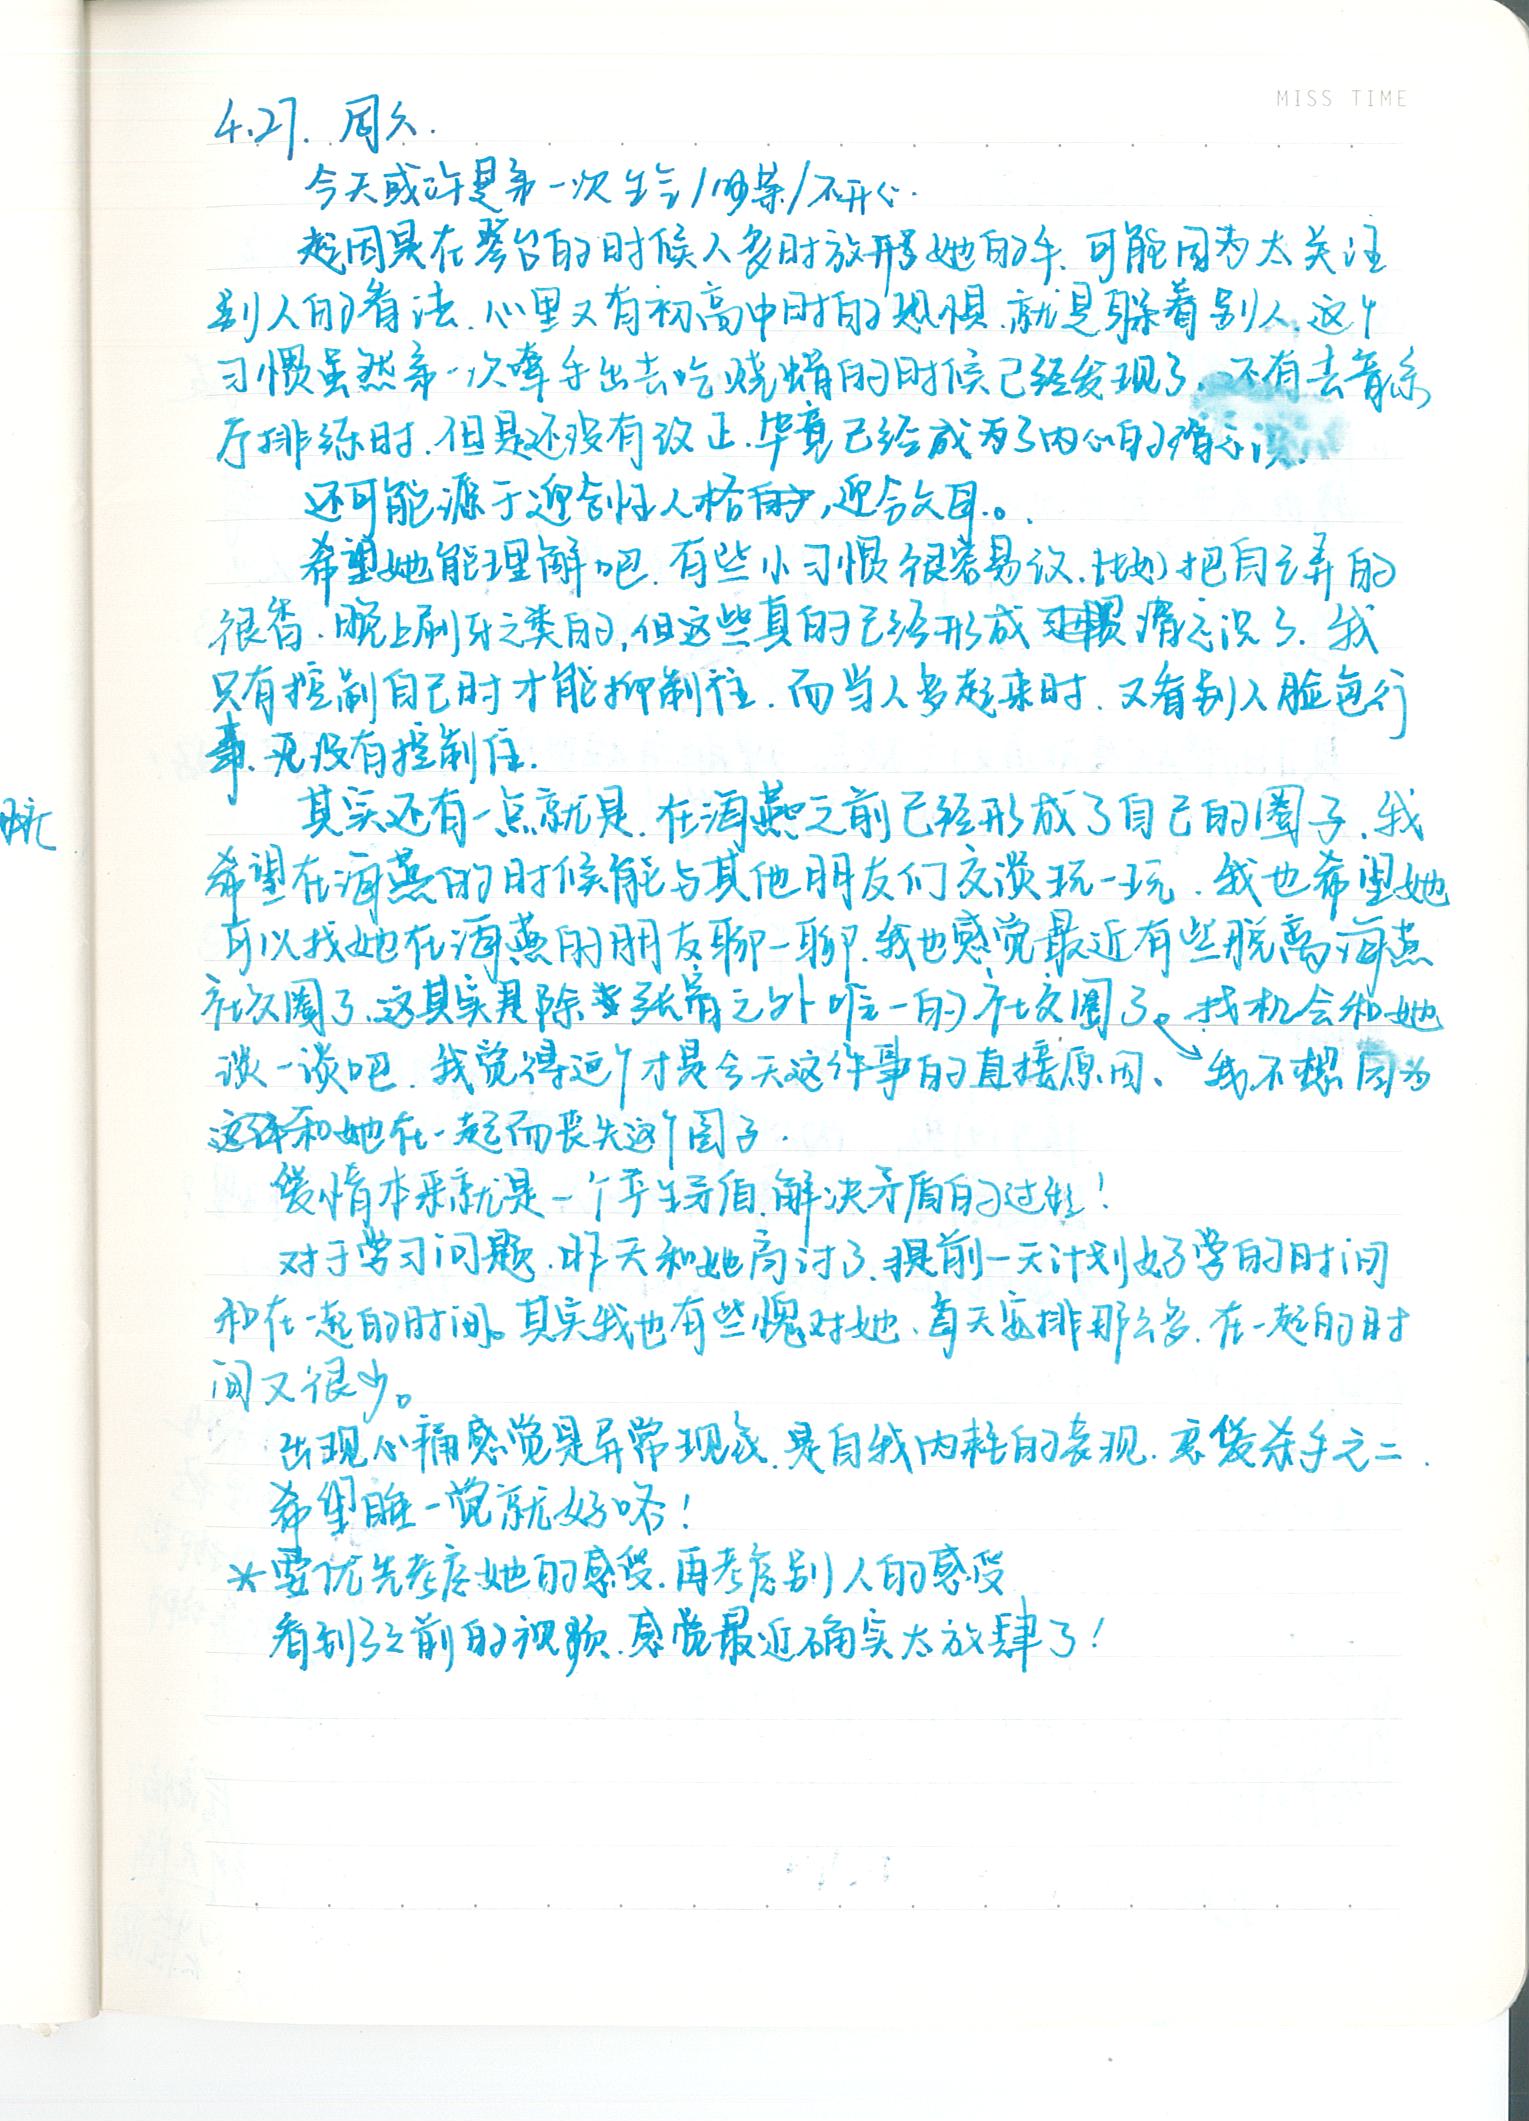 MISS TIME
4.27. 周六.
今天或许是第一次生气/吵架/不开心.
起因是在琴台的时候人多时放开了她的手、可能因为太关注
别人的看法、心里又有初高中时的恐惧、就是躲着别人、这个
习惯虽然第一次牵手出去吃烧烤的时候已经发现了、还有去音乐
厅排练时、但是还没有改正、毕竟已经成为了内心的潜意识.
还可能源于迎合性人格的,迎合父母。.
希望她能理解吧、有些小习惯很容易改、比如把自己弄的
很香、晚上刷牙之类的,但这些真的已经形成 潜意识了、我
只有控制自己时才能抑制住、而当人多起来时、又看别人脸色行
事、就没有控制住.
脏
其实还有一点就是、在海燕之前已经形成了自己的圈子、我
希望在海燕的时候能与其他朋友们交谈玩一玩、我也希望她
可以找她在海燕的朋友聊一聊、我也感觉最近有些脱离海燕
社交圈了、这其实是除 之外唯一的社交圈了。找机会和她
谈一谈吧、我觉得这个才是今天这件事的直接原因、我不想因为
和她在一起而丧失这个圈子.
爱情本来就是一个产生矛盾、解决矛盾的过程!
对于学习问题、昨天和她商讨了、提前一天计划好学的时间
和在一起的时间。其实我也有些愧对她、每天安排那么多、在一起的时
间又很少。
出现心痛感觉是异常现象、是自我内耗的表现、恋爱杀手之二.
希望睡一觉就好咯!
*要优先考虑她的感受、再考虑别人的感受
看到了之前的视频、感觉最近确实太放肆了!